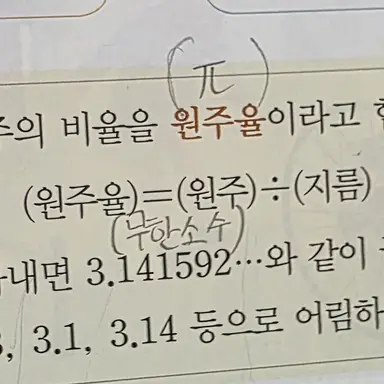 (π)
주의 비율을 원주율이라고 한
(원주율)=(원주)÷(지름)
(무한소수)
나내면 3.141592…와 같이
3, 3.1, 3.14 등으로 어림하